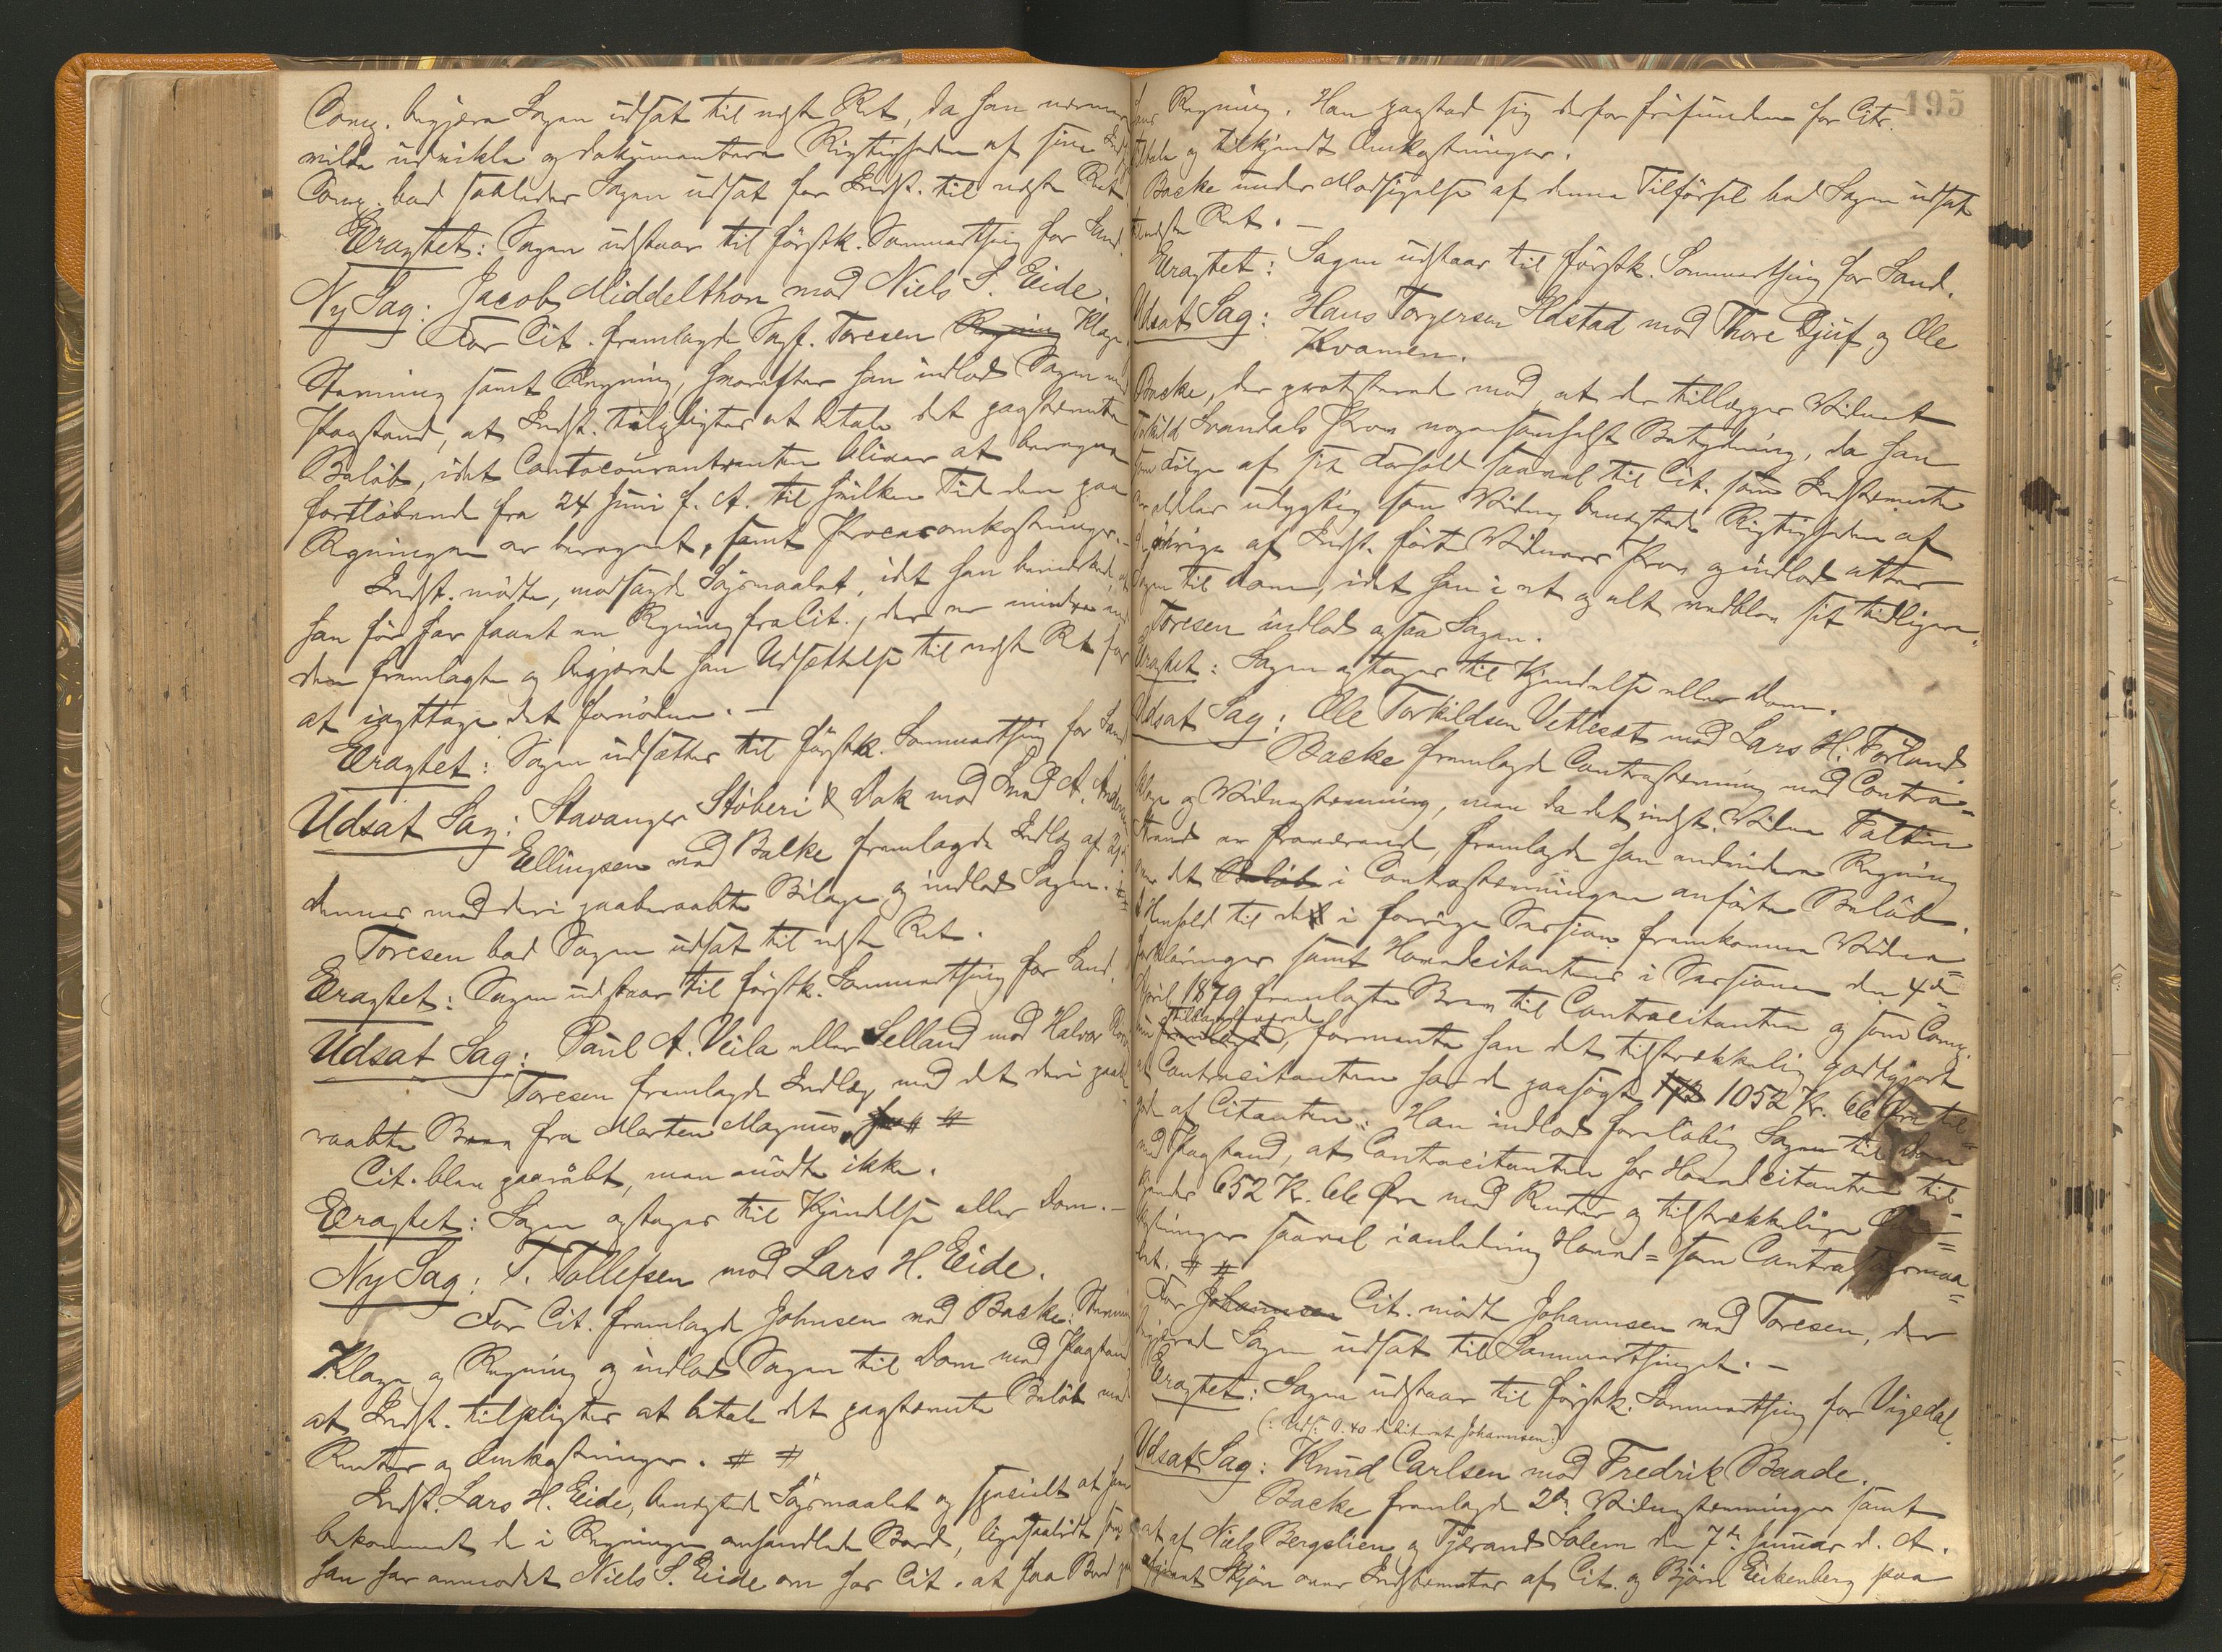 Comp. begjære Sagen udsat til næste Ret, da han nærmere
vilde udvikle og dokumentere Rigtigheden af sine
Comp. bad saaledes Sagen udsat for Indst. til næste Ret
Eragtet: Sagen udstaar til förstk. Sommerthing for Sand.
Ny Sag: Jacob Middelthon mod Niels S. Eide.
For Cit. fremlagde Sagf. Toresen Regning Klage,
Stævning samt Regning, hvorefter han indlod Sagen med
Paastand, at Indst. tilpligtes at betale det paastævnte
Belöb, idet Contocourantrenten bliver at beregne
fortlöbende fra 24 Juni f. A. til hvilken Tid den paa
Regningen er beregnet, samt Procesomkostninger.
Indst. mödte, modsagde Sögsmaalet, idet han bemærkede, at
han för har faaet en Regning fra Cit., der er mindre end
den fremlagte og begjærede han Udsættelse til næste Ret for
at iagttage det fornödne. —
Eragtet: Sagen udsættes til förstk. Sommerthing for Sand
Udsat Sag: Stavanger Stöberi & Dok mod A.
Ellingsen med Balke fremlagde Indlæg af
dennes med deri paaberaabte Bilage og indlod Sagen.
Toresen bad Sagen udsat til næste Ret.
Eragtet: Sagen udstaar til förstk. Sommerthing for Sand.
Udsat Sag: Paul A. Veila eller Selland mod Halvor
Toresen fremlagde Indlæg med det deri paabe-
raabte Brev fra Morten Magnus # #
Cit. blev paaraabt, men mödte ikke.
Eragtet: Sagen optages til Kjendelse eller Dom. —
Ny Sag: T. Tollefsen mod Lars H. Eide.
For Cit. fremlagde Johnsen med Backe: Stævning
Klage og Regning og indlod Sagen til Dom med Paastand
at Indst. tilpligtes at betale det paastævnte Belöb med
Renter og Omkostninger. # #
Indst. Lars H. Eide, benegtede Sögsmaalet og specielt at have
bekommet de i Regningen omhandlede Bord, ligesaalidt som
han har anmodet Niels S. Eide om hos Cit. at faa Bord paa
195
hans Regning. Han paastod sig derfor frifunden for Cits.
Tiltale og tilkjendt Omkostninger.
Backe under Modsigelse af denne Tilförsel bad Sagen udsat
til næste Ret. —
Eragtet: Sagen udstaar til förstk. Sommerthing for Sand.
Udsat Sag: Hans Torgersen Hästad mod Thore Djuf og Ole
Kvamen.
Backe, der protesterede mod, at der tillægges Vidnet
Torkild Svandals Prov nogensomhelst Betydning, da han
som Fölge af sit Forhold saavel til Cit. som Indstævnte
er aldeles udygtig som Vidne benegtede Rigtigheden af
de övrige af Indst. förte Vidners Prov og indlod atter
Sagen til Dom, idet han i et og alt vedblev sit tidligere.
Toresen indlod ogsaa Sagen.
Eragtet: Sagen optages til Kjendelse eller Dom.
Udsat Sag: Ole Torkildsen Vetlesöt mod Lars H. Forland.
Backe fremlagde Contrastævning med Contra-
klage og Vidnestævning, men da det indst. Vidne Fattin
Strand er fraværende, fremlagde han endvidere Regning
over det Belöb i Contrastævningen anförte Belöb.
I Henhold til de i forrige Session fremkomne Vidne-
forklaringer samt Hovedcitantens i Sessionen den 4de
April 1879 fremlagte Brev til Contracitanten og som Comp.
tilbageleverede
nu fremlagde, formente han det tilstrækkelig godtgjort
at Contracitanten har de paasögte 1052 Kr. 66 Öre til-
gode af Citanten. Han indlod foreløbig Sagen til Dom
med Paastand, at Contracitanten hos Hovedcitanten til-
kjendes 652 Kr. 66 Öre med Renter og tilstrækkelige Om-
kostninger saavel i anledning Hoved- som Contrasögsmaa-
let. # #
For Johannsen Cit. mödte Johannsen med Toresen, der
begjærede Sagen udsat til Sommerthinget. —
Eragtet: Sagen udstaar til förstk. Sommerthing for Vigedal.
(: Udf: 0.40 debiteret Johannsen:)
Udsat Sag: Knud Carlsen mod Fredrik Baade.
Backe fremlagde 2de Vidnestævninger samt
et af Niels Bergelien og Tjærand Solem den 7de Januar d. A.
afgivet Skjön over Indstævntes af Cit. og Björn Eikenberg paa